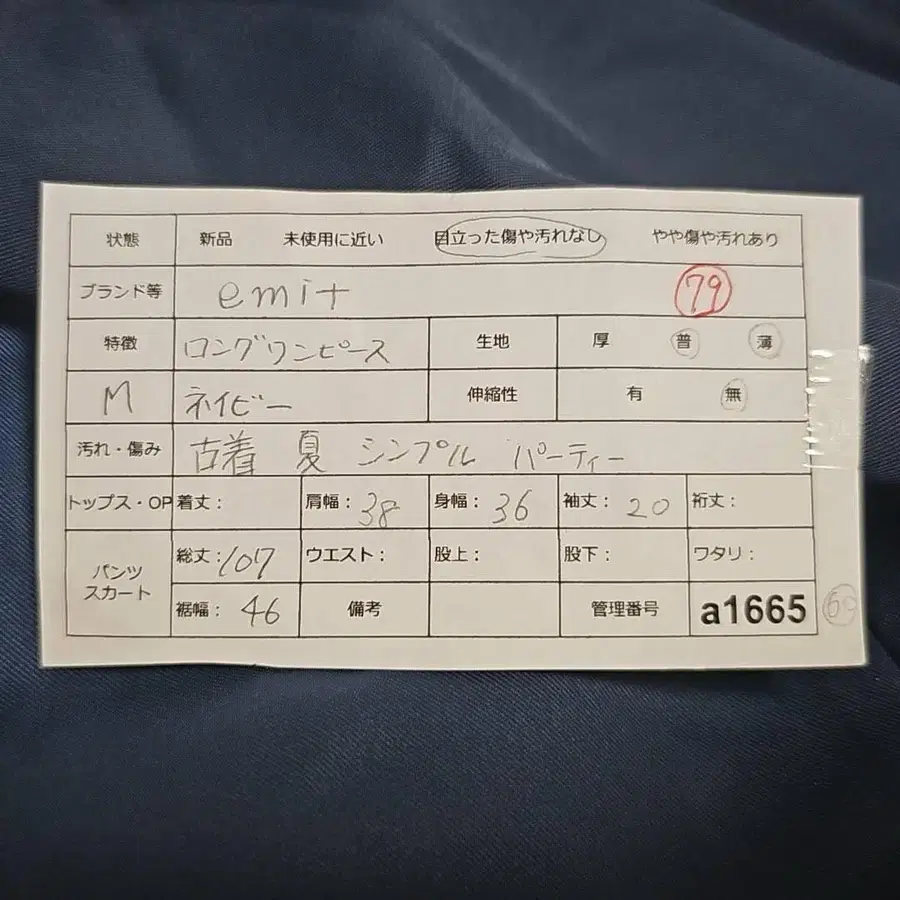 状態 新品 未使用に近い 目立った傷や汚れなし やや傷や汚れあり
ブランド等 emit 79
特徴 ロングワンピース 生地 厚 普 薄
M ネイビー 伸縮性 有 無
汚れ・傷み 古着 夏 シンプル パーティー
トップス・OP 着丈: 肩幅: 38 身幅: 36 袖丈: 20 裄丈:
パンツ スカート 総丈: 107 ウエスト: 股上: 股下: ワタリ:
裾幅: 46 備考 管理番号 a1665